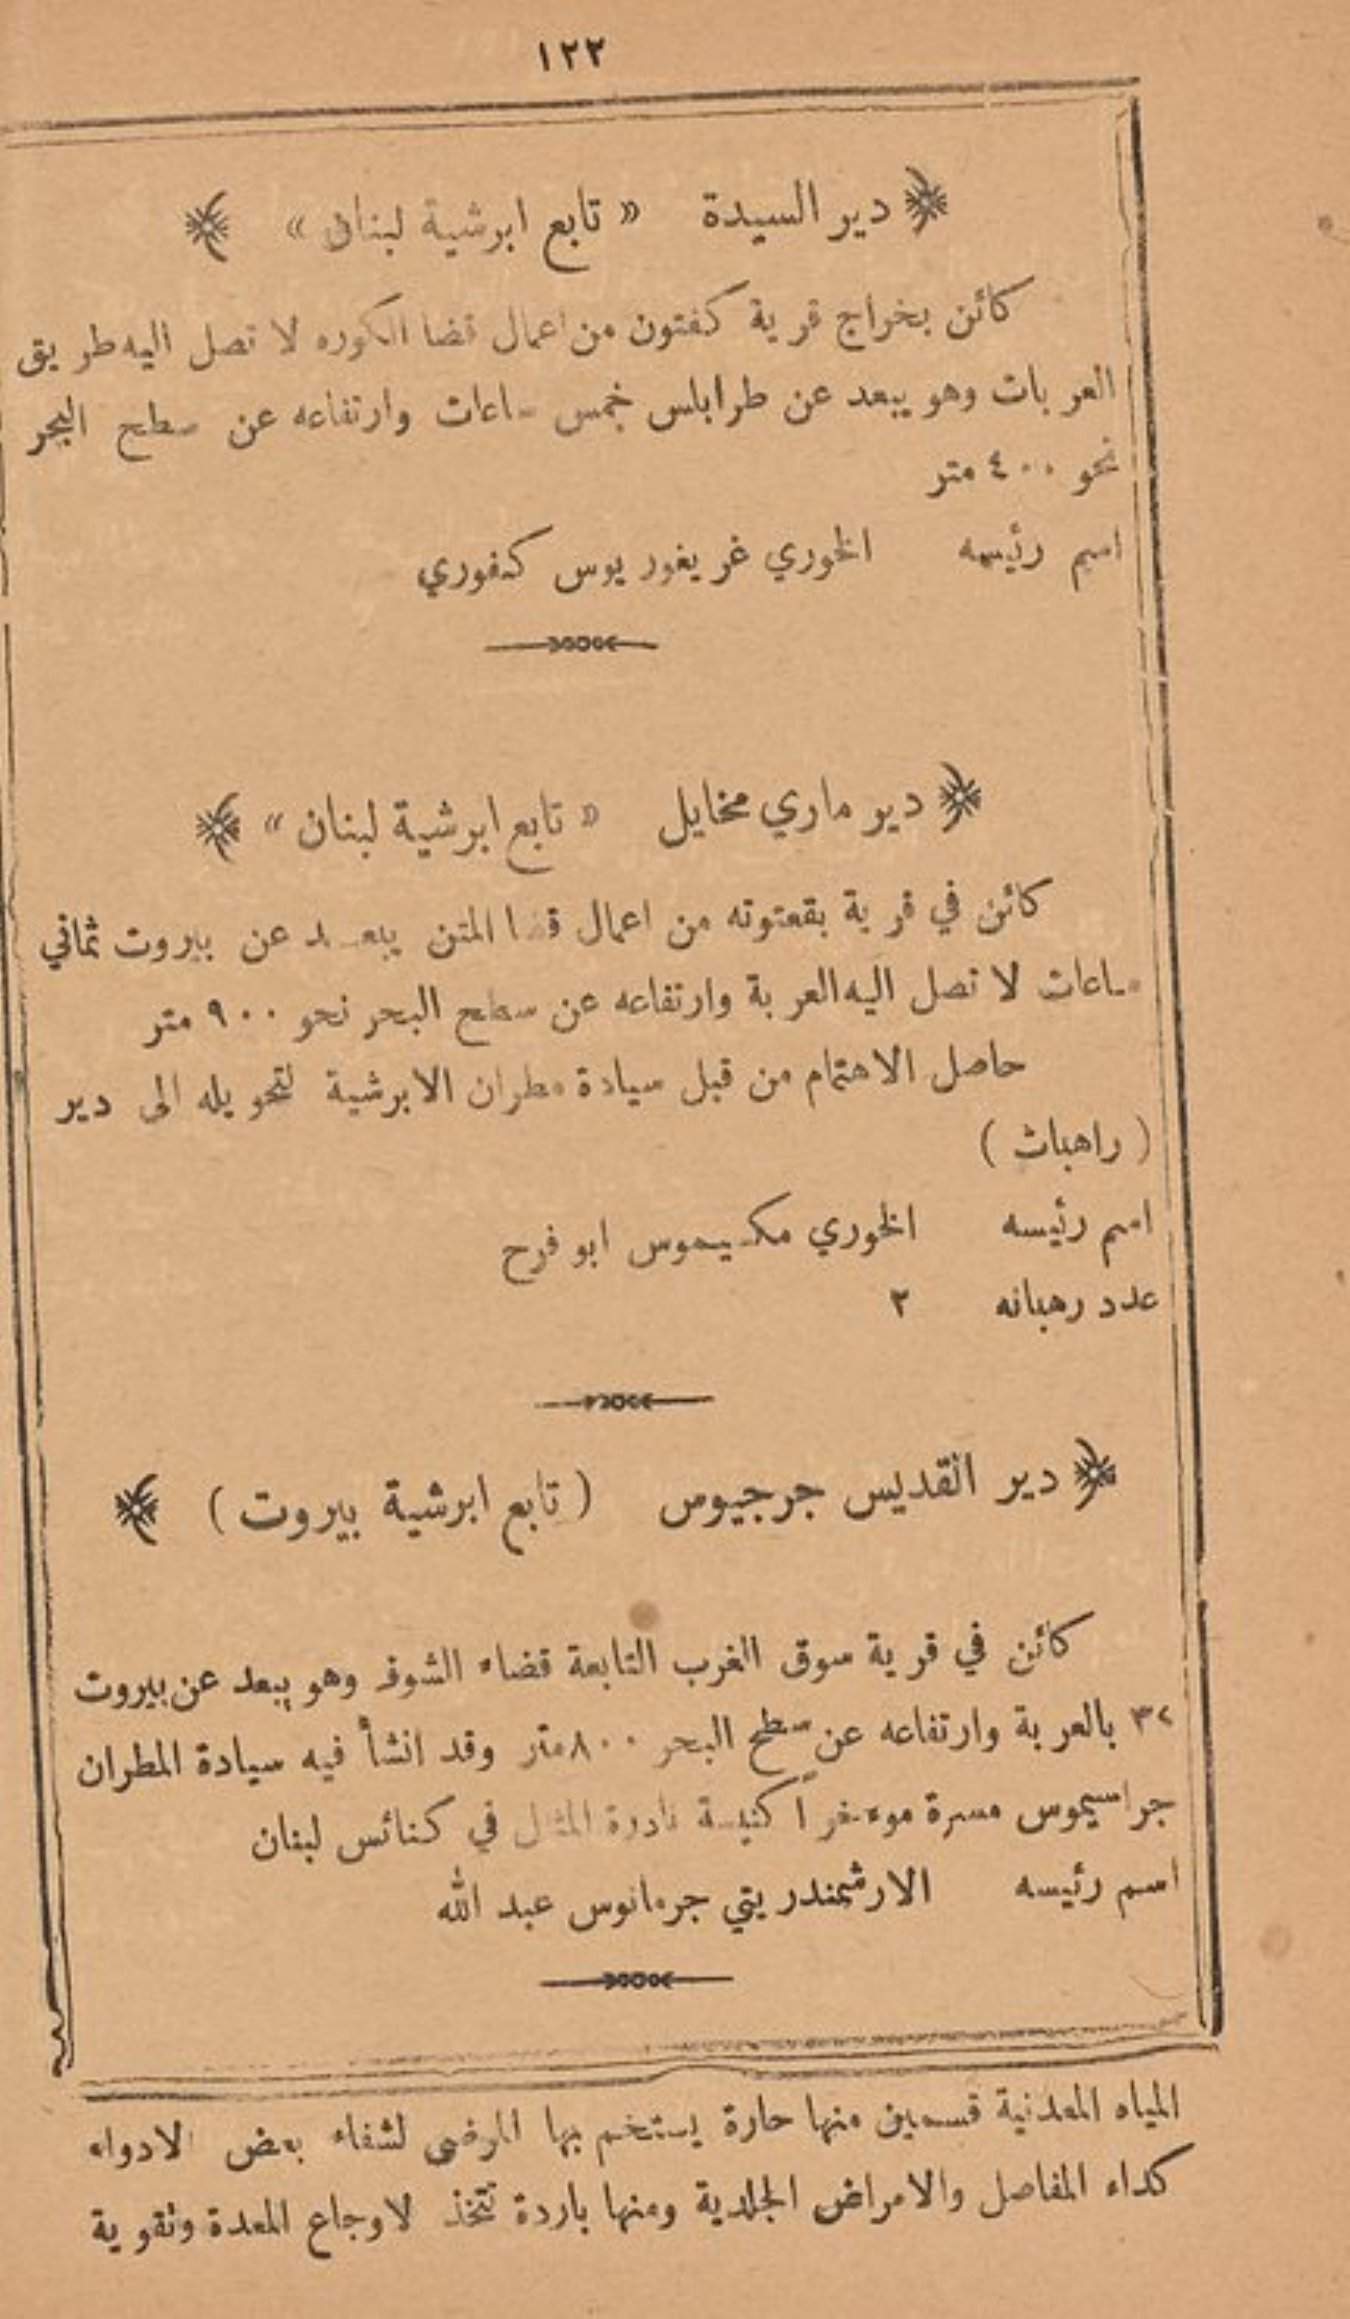 ١٢٢
دير السيدة « تابع ابرشية لبنان »
كائن بخراج قرية كفتون من اعمال قضا الكوره لا تصل اليه طريق
العربات وهو يبعد عن طرابلس خمس ساعات وارتفاعه عن سطح البحر
نحو ٤٠٠ متر
اسم رئيسه الخوري غريغوريوس كفوري
دير ماري مخايل « تابع ابرشية لبنان »
كائن في قرية بقعتوته من اعمال قضا المتن يبعد عن بيروت ثماني
ساعات لا تصل اليه العربة وارتفاعه عن سطح البحر نحو ٩٠٠ متر
حاصل الاهتمام من قبل سيادة مطران الابرشية لتحويله الى دير
( راهبات )
اسم رئيسه الخوري مكسيموس ابو فرح
عدد رهبانه ٢
دير القديس جرجيوس ( تابع ابرشية بيروت )
كائن في قرية سوق الغرب التابعة قضاء الشوف وهو يبعد عن بيروت
بالعربة وارتفاعه عن سطح البحر ٨٠٠ متر وقد انشأ فيه سيادة المطران
جراسيموس مسرة موءخراً كنيسة نادرة المثال في كنائس لبنان
اسم رئيسه الارشمندريتي جرمانوس عبد الله
المياه المعدنية قسمين منها حارة يستخم بها المرضى لشفاء بعض الادواء
كداء المفاصل والامراض الجلدية ومنها باردة تتخذ لاوجاع المعدة وتقوية